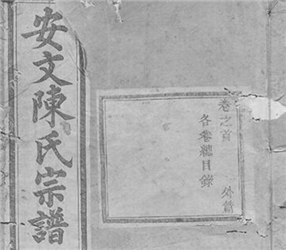 安文陳氏宗譜
卷之首
各卷總目錄
外篇